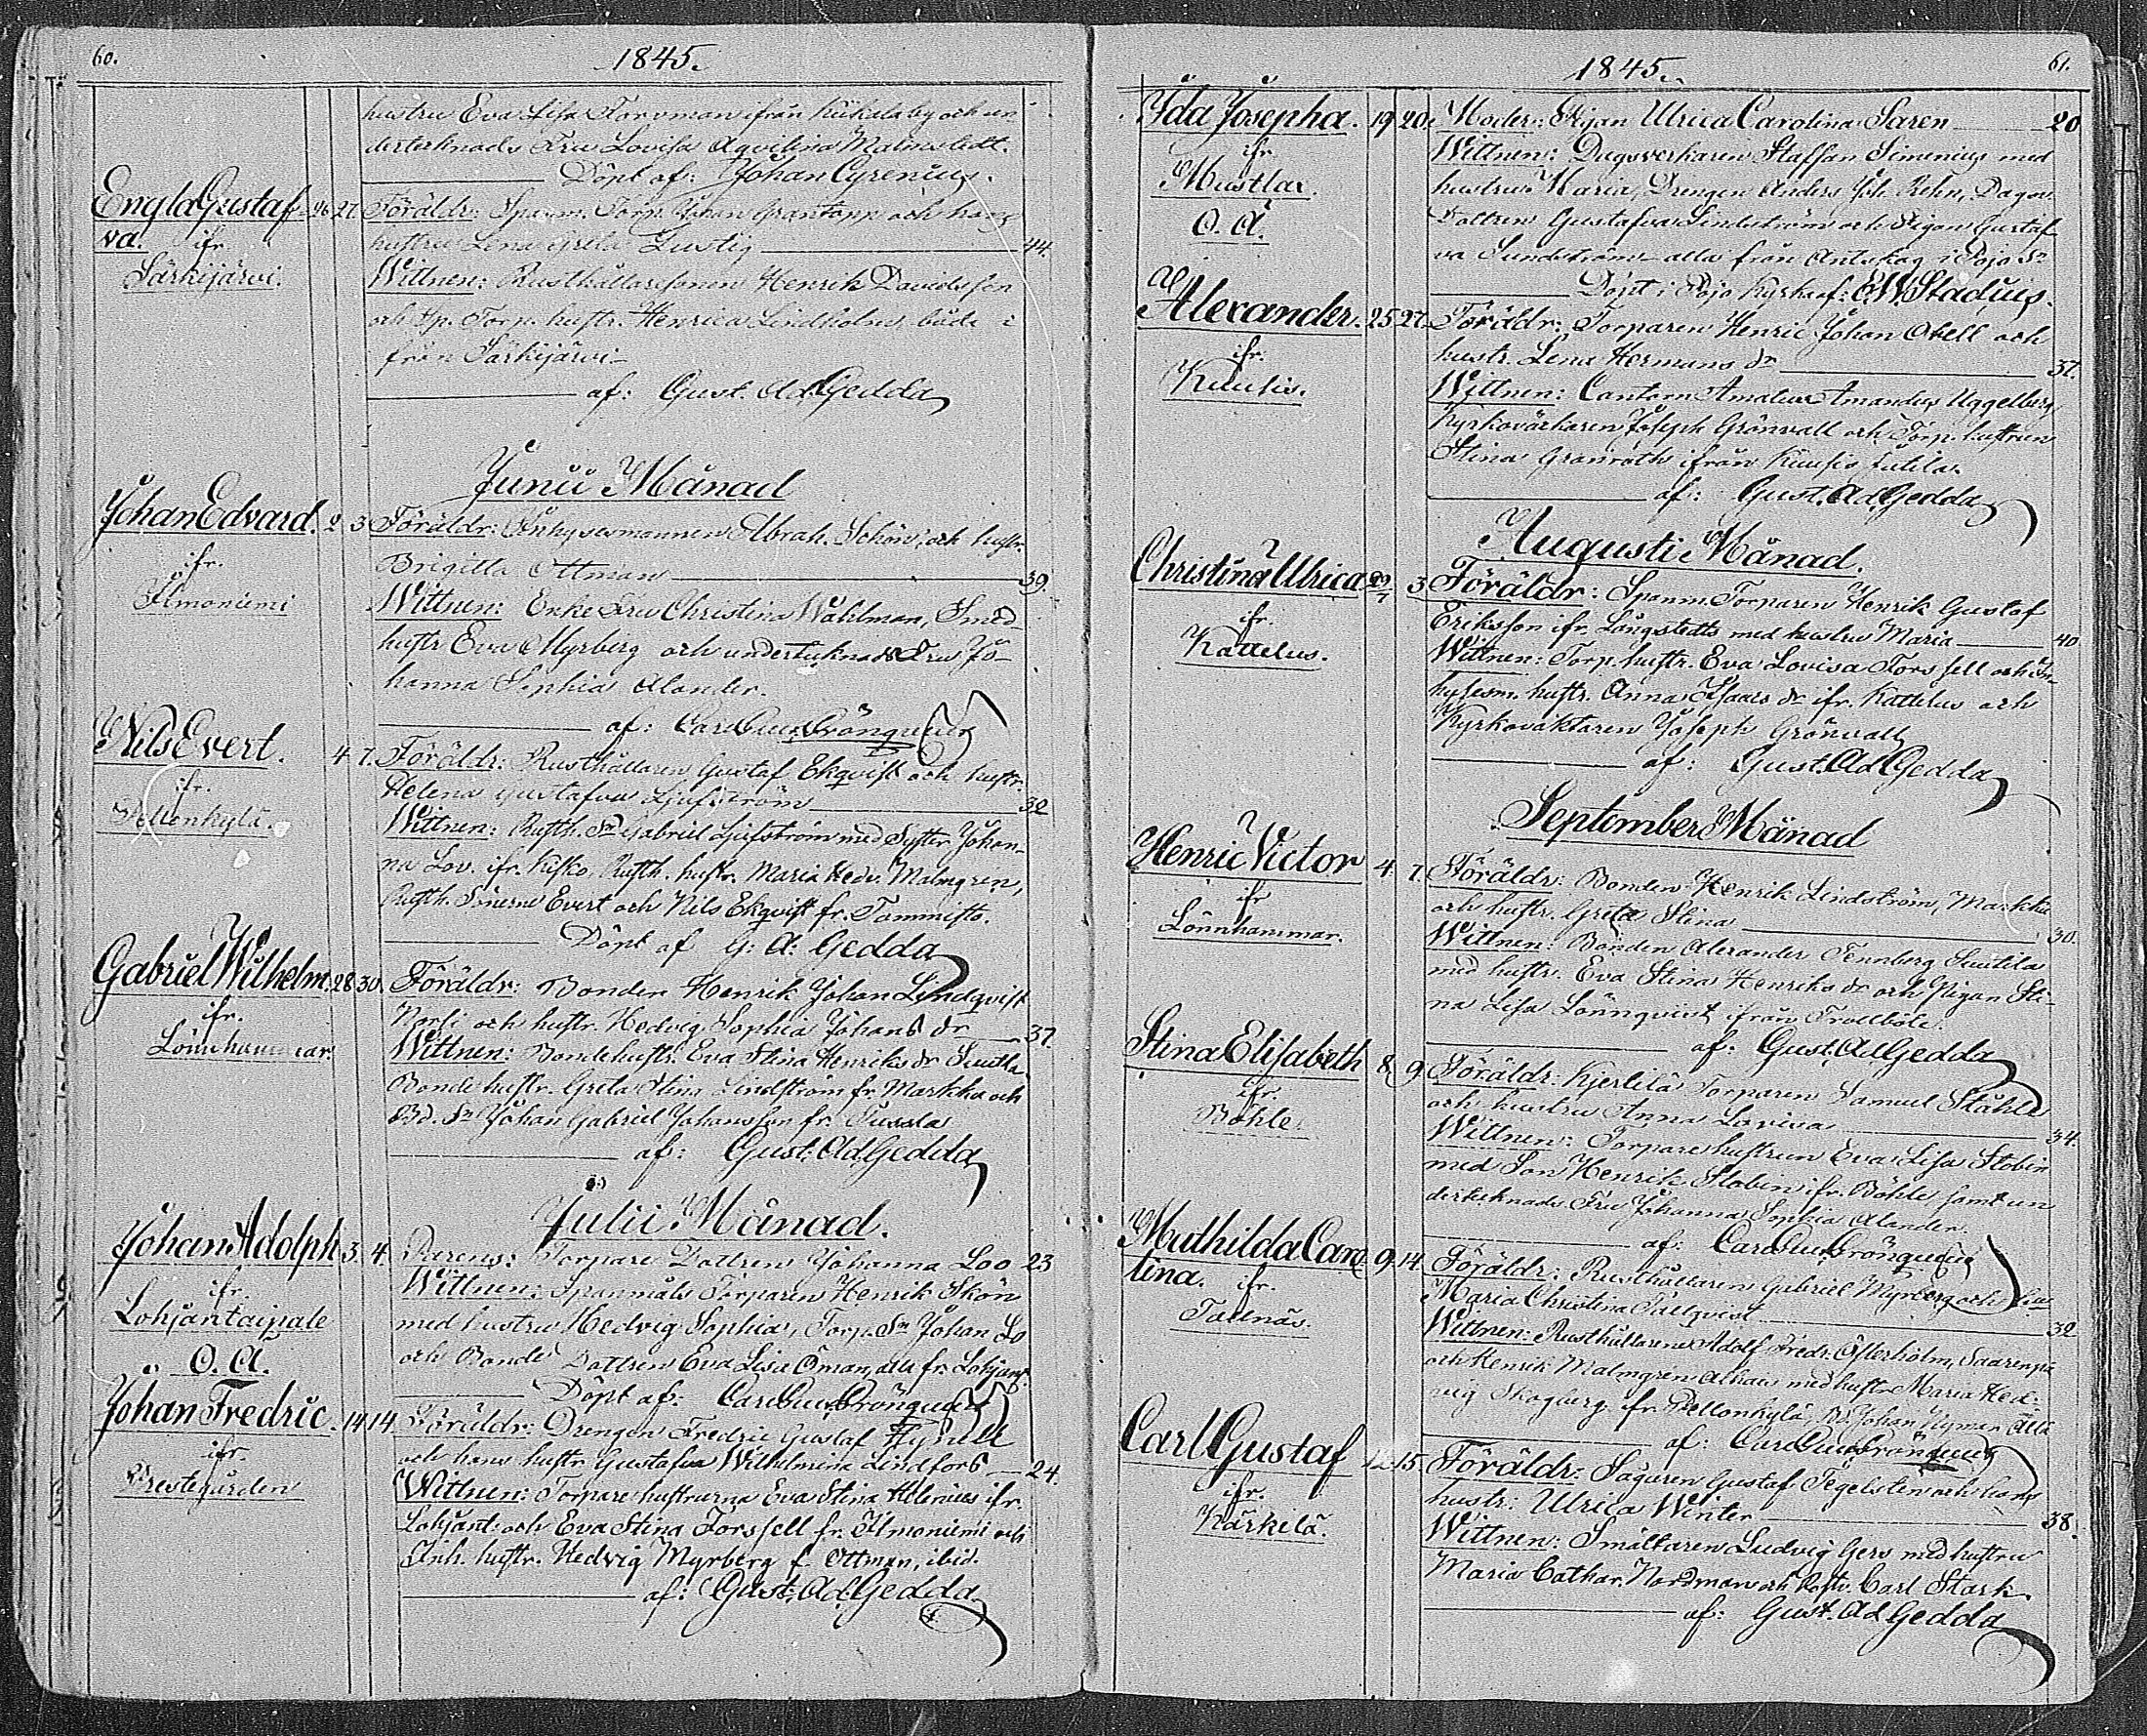 60.
1845.
hustru Eva Lisa Forsman ifrån Kiikala by och un
dertecknads Fru Lovisa Aqvilina Malmstedt.
Döpt af: Johan Cyrenius.
Engla Gustaf 26 27. Föräldr: Spanm. Torp. Johan Grantopp och hans
va. ifr. hustru Lena Greta Lustig 44.
Särkijärvi. Wittnen: Rusthållaresonen Henrik Davidsson
och Sp. Torp. hustr. Henrica Lindholm, båda i
från Särkijärvi
af: Gust. Ad. Gedda
Junii Månad
Johan Edvard. 2 3 Föräldr: Inhysesmannen Abrah. Schön, och hustr.
ifr. Brigitta Ottman 39.
Ilmoniemi Wittnen: Enke Fru Christina Wahlman, Smed
hustr Eva Myrberg och undertecknads Fru Jo-
hanna Sophia Alander.
af: Carl Gust. Grönqvist
Nils Evert. 4 7. Föräldr: Rusthållaren Gustaf Ekqvist och hustr.
ifr. Helena Gustafva Ljufström 32
Pellonkylä. Wittnen: Rusth. Sn Gabriel Ljufström med Syster Johan-
na Lov. ifr. Kisko, Rusth. hustr. Maria Hedv. Malmgrén,
Rusth. Sönerne Evert och Nils Ekqvist fr. Tammisto.
Döpt af G: A: Gedda
Gabriel Wilhelm. 28 30. Föräldr: Bonden Henrik Johan Lindqvist
ifr. och hustr. Hedvig Sophia Johans dr 37.
Lönnhammar Wittnen: Bondehustr. Eva Stina Henriks dr Suutila
Bonde hustr. Greta Stina Lindström fr. Markku och
Bd. Sn Johan Gabriel Johansson fr. Tussla
af: Gust. Ad. Gedda
Julii Månad.
Johan Adolph 3. 4. Parens: Torpare Dottren Johanna Loo 23
ifr. Wittnen: Spanmåls Torparen Henrik Skön
Lohjantaipale med hustru Hedvig Sophia, Torp. Sn Johan Lo
O. Ä. och Bonde Dottren Eva Lisa Öman, alla fr. Lohjant.
Döpt af: Carl Gust. Grönqvist
Johan Fredric. 14 14. Föräldr: Drengen Fredric Gustaf
ifr. och hans hustr Gustafva Wilhelmina Lindfors 24.
Prestegården Wittnen: Torpare hustrurna Eva Stina Helenius ifr.
Lohjant. och Eva Stina Forssell fr. Ilmoniemi och
Inh. hustr. Hedvig Myrberg f. Ottman, ibid.
af: Gust. Ad. Gedda
61.
1845.
Ida Josepha. 19 20. Moder: Pigan Ulrica Carolina Saren 20
ifr. Wittnen: Dagsverkaren Staffan Simenius med
Mustlax. hustru Maria, Drengen Anders Joh. Rehn, Dagsv.
O. Ä. Dottren Gustafva Lindström och Pigan Gustaf
va Sundström alla från Antskog i Pojo Sn
Döpt i Pojo Kyrka af: E. W. Stadius.
Alexander. 25 27. Föräldr: Torparen Henric Johan Abell och
ifr. hustr. Lena Hermans dr 37.
Kuusis. Wittnen: Cantorn Amatus Amandus Uggelberg
Kyrkovärkaren Joseph Grönvall och Torp. hustrun
Stina Granroth ifrån Kuusis
af: Gust. Ad. Gedda
Augusti Månad.
Christina Ulrica. 29/7 3 Föräldr: Spanm. Torparen Henrik Gustaf
ifr. Eriksson ifr. Långstedts med hustru Maria 40
Kattelus. Wittnen: Torp. hustr. Eva Lovisa Forssell och In-
hysesm. hustr. Anna Isaacs dr ifr. Kattelus och
Kyrkovaktaren Joseph Grönvall
af: Gust. Ad. Gedda
September Månad
Henric Victor 4. 7. Föräldr: Bonden Henrik Lindström, Markku
ifr och hustr. Greta Stina 30.
Lönnhammar. Wittnen: Bonden Alexander Tennberg Suutila
med hustr. Eva Stina Henriks dr och Pigan Sti-
na Lisa Lönnqvist ifrån Trollböle.
af: Gust. Ad Gedda
Stina Elisabeth 8 9. Föräldr: Kjerlilä Torparen Samuel Ståhle
ifr. och hustru Anna Lovisa 34.
Böhle. Wittnen: Torparehustrun Eva Lisa Stobin
med Son Henrik Stobin ifr. Böhle samt un
dertecknads Fru Johanna Sophia Alander.
af: Carl Gust. Grönqvist
Mathilda Caro 9. 14. Föräldr: Rusthållaren Gabriel Myrberg och hus
lina. ifr. Maria Christina Tallqvist 32
Tallnäs. Wittnen: Rusthållarne Adolf Fredr. Österholm, Saarenpä
och Henrik Malmgren med hustr Maria Hed-
vig Skogberg fr. Pellonkylä, Bd. Johan Nyman
af: Carl Gust. Grönqvist
Carl Gustaf 12. 15. Föräldr: Sågaren Gustaf Tegelsten och hans
ifr. hustr: Ulrica Winter 38.
Kärkelä. Wittnen: Smältaren Ludvig Gers med hustru
Maria Cathar. Nordman och Carl Stark.
af: Gust. Ad Gedda